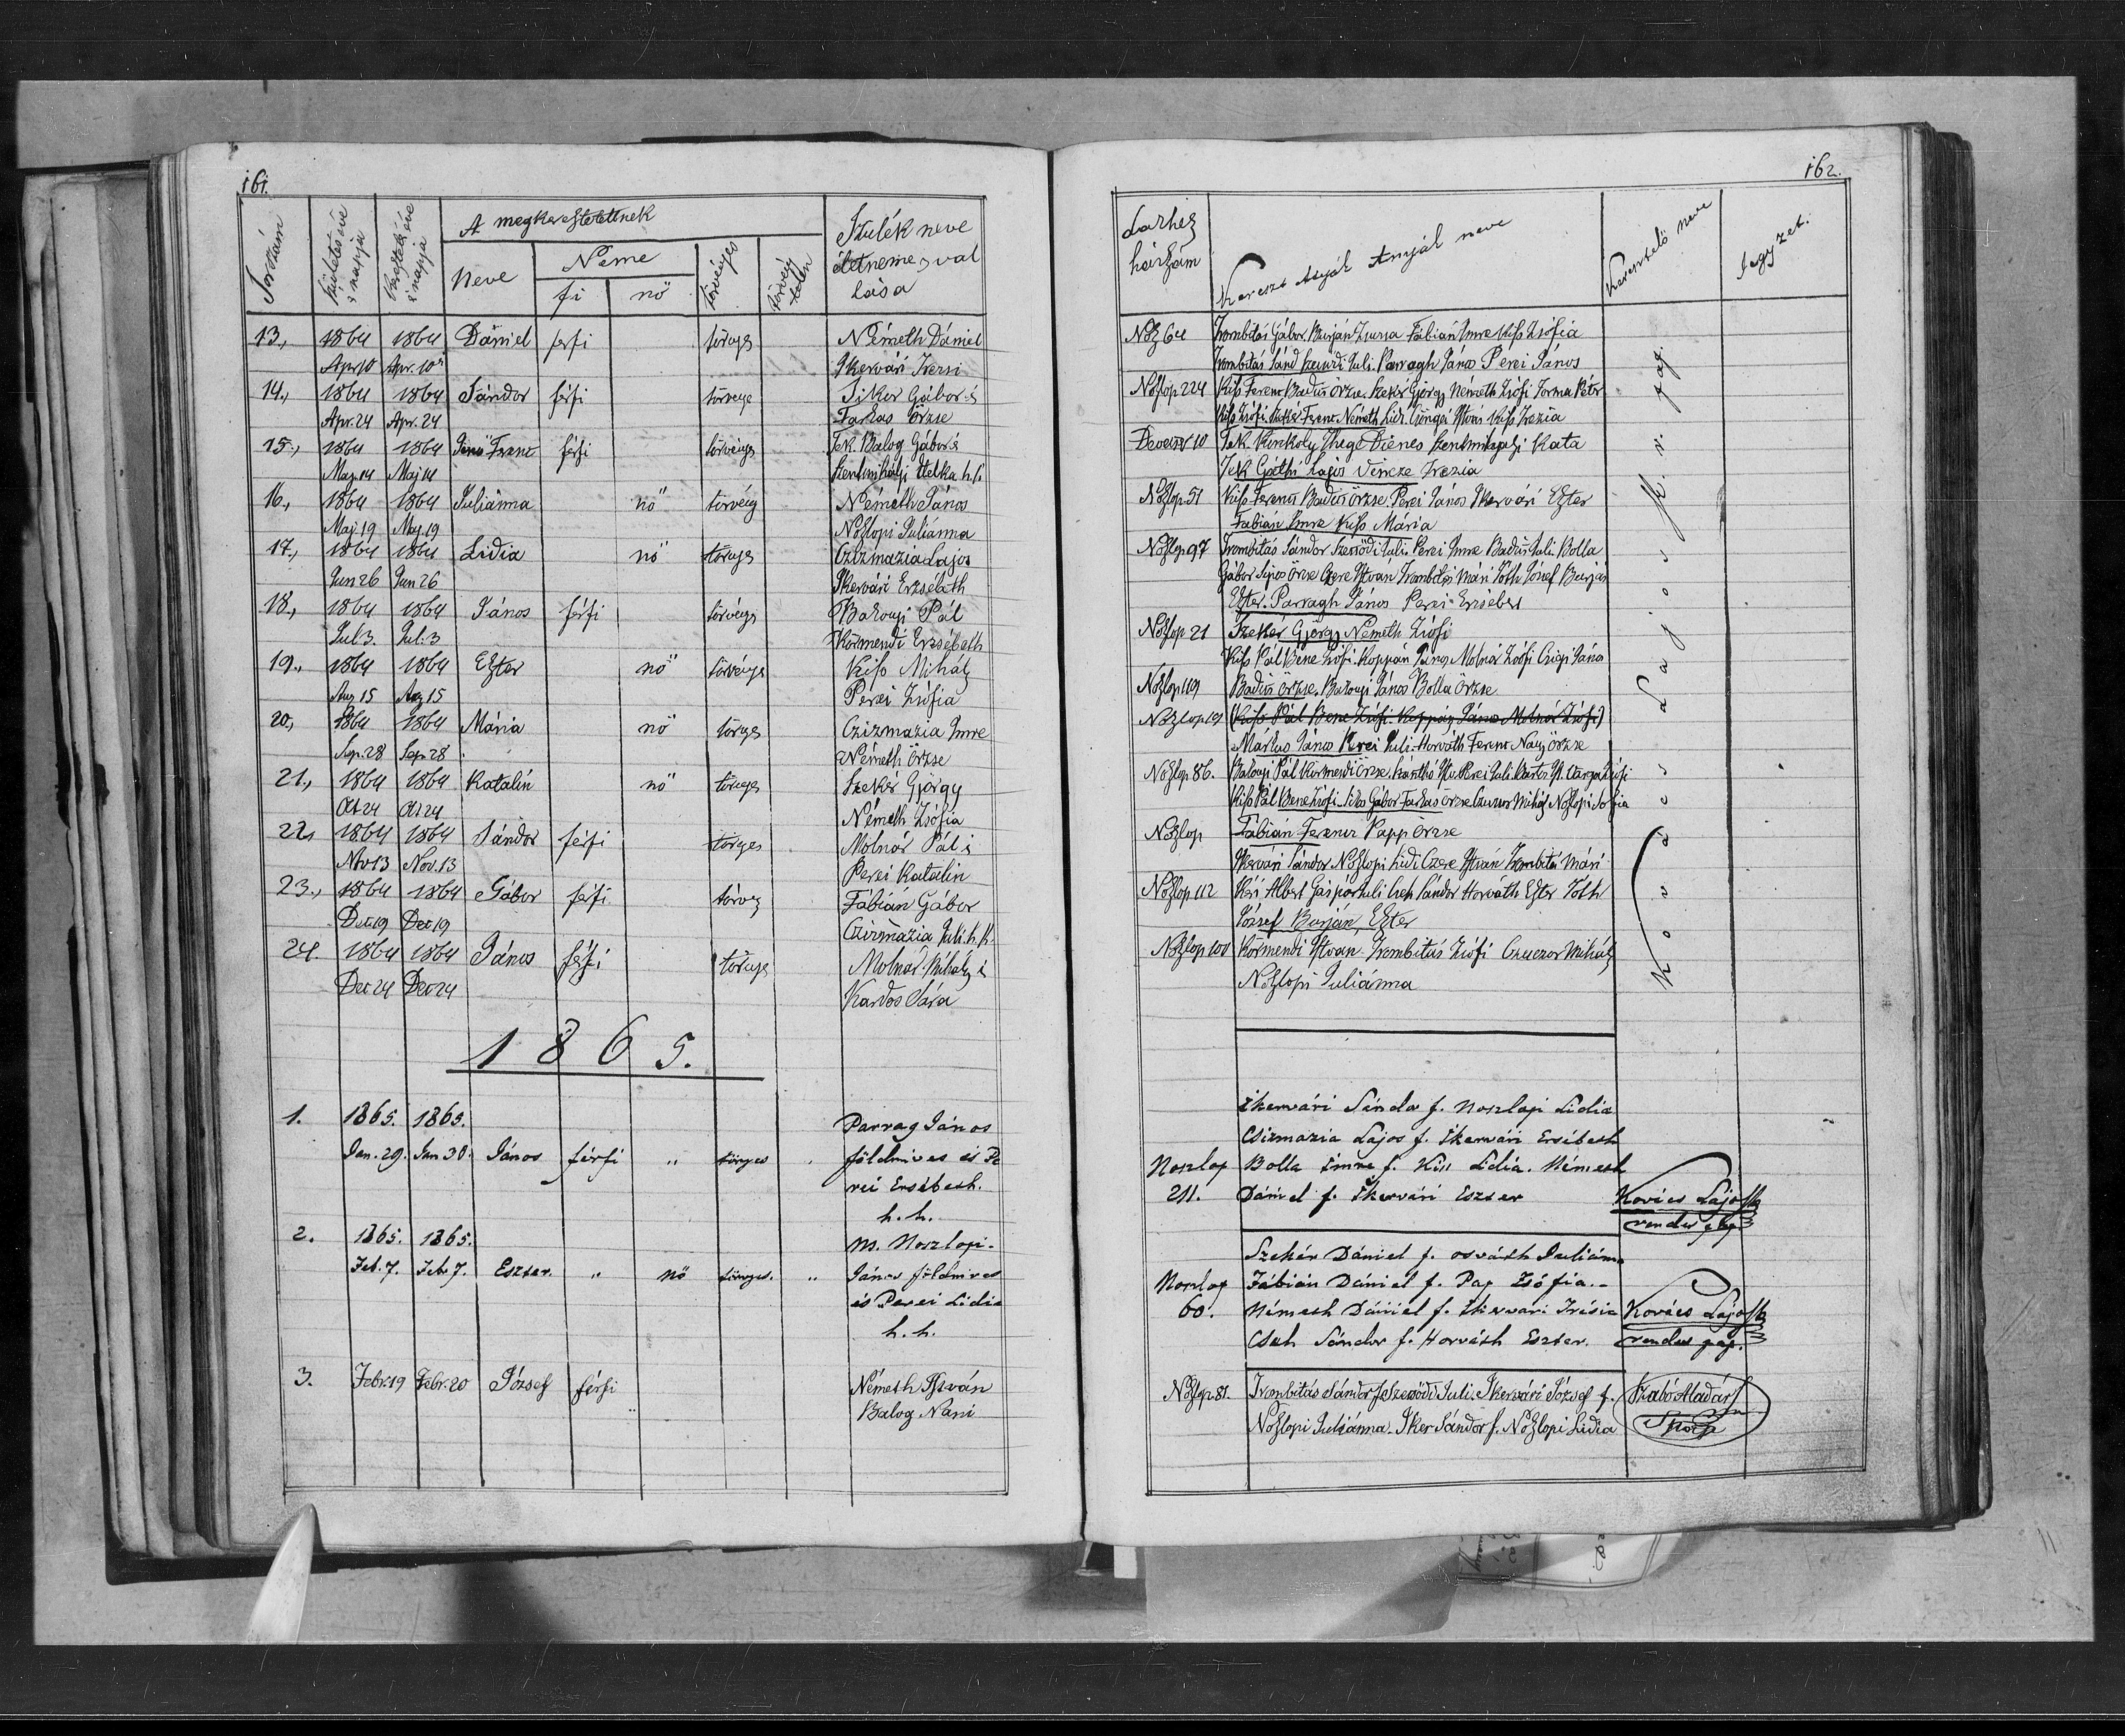 161.
Sorszám
Születés éve s napja
Keresztelés éve s napja
A megkereszteltetnek
Neve
Neme
fi
nő
törvényes
törvénytelen
Szülék neve
életneme, val
lása
13., 1864 1864 Dániel férfi törvyes Németh Dániel
Apr. 10 Apr. 10 Ikervári Trézsi
14., 1864 1864 Sándor férfi törvénye Siker Gábor é
Apr. 24 Apr. 24 Farkas Örzse
15., 1864 1864 Ferenc férfi törvényes Tek. Balog Gábor é
Maj. 14 Maj 14 Szentmihályi Etelka h.h.
16., 1864 1864 Juliánna nő törvény Németh János
Maj. 19 Maj. 19 Noszlopi Juliánna
17., 1864 1864 Lidia nő törvyes Czizmazia Lajos
Jun 26 Jun 26 Ikervári Erzsébeth
18., 1864 1864 János férfi törvénys Bakonyi Pál
Jul. 3. Jul. 3 Körmendi Erzsébeth
19., 1864 1864 Eszter nő törvénys Kiss Mihály
Aug 15 Aug 15 Perei Zsófia
20., 1864 1864 Mária nő törvyes Czizmazia Imre
Sep. 28 Sep. 28 Németh Örzse
21., 1864 1864 Katalin nő törvyes Szekér György
Oct 24 Oct 24 Németh Zsófia
22. 1864 1864 Sándor férfi törvyes Molnár Pál é
Nov 13 Nov. 13 Perei Katalin
23., 1864 1864 Gábor férfi törvy Fábián Gábor
Dec 19 Dec 19 Czizmazia Juli. h.h.
24. 1864 1864 János férfi törvyes Molnár Mihály é
Dec 24 Dec 24 Kardos Sára
1865.
1. 1865. 1865. Parrag János
Jan. 29. Jan 30. János férfi " törvyes földmives és Pe
rei Ersébeth.
h. h.
2. 1865. 1865. m. Noszlopi
Feb. 7. Feb 7. Eszter. " nő törvyes. " János földmives
és Perei Lidia
h. h.
3. Febr. 19 Febr. 20 József férfi Németh István
Balog Nani
162.
Lakhely
házszám
Kereszt Atyák Anyák neve
Keresztelő neve
Jegyzet.
Nosz 64 Trombitás Gábor Burján Zsuzsa Fábián Imre Kiss Zsófia
Trombitás Sánd Szerződi Juli. Parragh János Perei János
Noszlop 224 Kiss Ferenc Badics Örzse. Szekér György Németh Zsófi Torma Péter
Kiss Zsófi. Ferenc Németh Lidi. István Kiss Trezia
Devecser 10 Tek. Konkoly Thege Dienes Szentmihályi Kata
Tek Gáthi Lajos Vincze Trezia
Noszlop 51 Kiss Ferencz Badics Örzse. Perei János Ikervári Eszter
Fabián Imre Kiss Mária
Noszlop 97 Trombitás Sándor Szerződi Juli. Perei Imre Badics Juli. Bolla
Gábor Örzse Czere István Trombitás Mári Tóth József Burján
Eszter. Parragh János Perei Erzsébet
Noszlop 21 Szekér György Németh Zsófi
Kiss Pál Bene Zsófi. Koppán János Molnár Zsófi János
Noszlop 119 Badics Örzse. Bakonyi János Bolla Örzse
Noszlop 19 (Kiss Pál Bene Zsófi. Koppán János Molnár Zsófi)
Márkus János Perei Juli. Horváth Ferenc Nagy Örzse
Noszlop 86. Bakonyi Pál Körmendi Örzse. Perei Juli. Zsófi
Kiss Pál Bene Zsófi. Siko Gábor Farkas Örzse Czuczor Mihály Noszlopi Sofia
Noszlop Fábián Ferencz Papp Örzse
Ikervári Sándor Noszlopi Lidi. Czere István Trombitás Mári
Noszlop 112 Kéri Albert Gáspár Juli Cseh Sándor Horváth Eszter Tóth
József Burján Eszter
Noszlop 100 Körmendi István. Trombitás Zsófi Czuczor Mihály
Noszlopi Juliánna
Kovács Lajos
Ikervári Sándor f. Noszlopi Lidia
Csizmazia Lajos f. Ikervári Ersébeth
Noszlop Bolla Imre f. Kiss Lidia. Németh
211. Dániel f. Ikervári Eszter Kovács Lajos
rendes pap
Szekér Dániel f. Osváth Juliánna
Noszlop Fábián Dániel f. Pap Zsófia.-
60. Németh Dániel f. Ikervári Trésia Kovács Lajos
Cseh Sándor f. Horváth Eszter. rendes pap.
Noszlop 81. Trombitás Sándor f. Szerződi Juli. Ikervári József f. Szabó Aladár
Noszlopi Juliánna. Iker Sándor f. Noszlopi Lidia